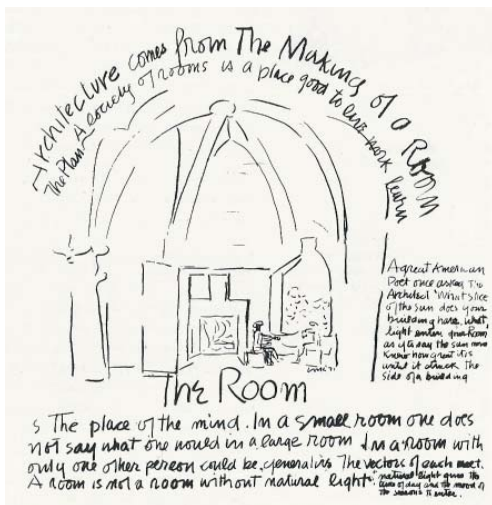 Architecture comes from The Making of a Room
The Plan A society of rooms is a place good to live work learn
A great American
Poet once asked The
Architect 'What slice
of the sun does your
building have, what
light enters your Room
as if to say the sun never
knew how great it is
until it struck the
side of a building
The Room
s The place of the mind. In a small room one does
not say what one would in a large room In a room with
only one other person could be generative The vectors of each meet.
A room is not a room without natural light
natural light gives the
time of day and the mood of
the seasons to enter.